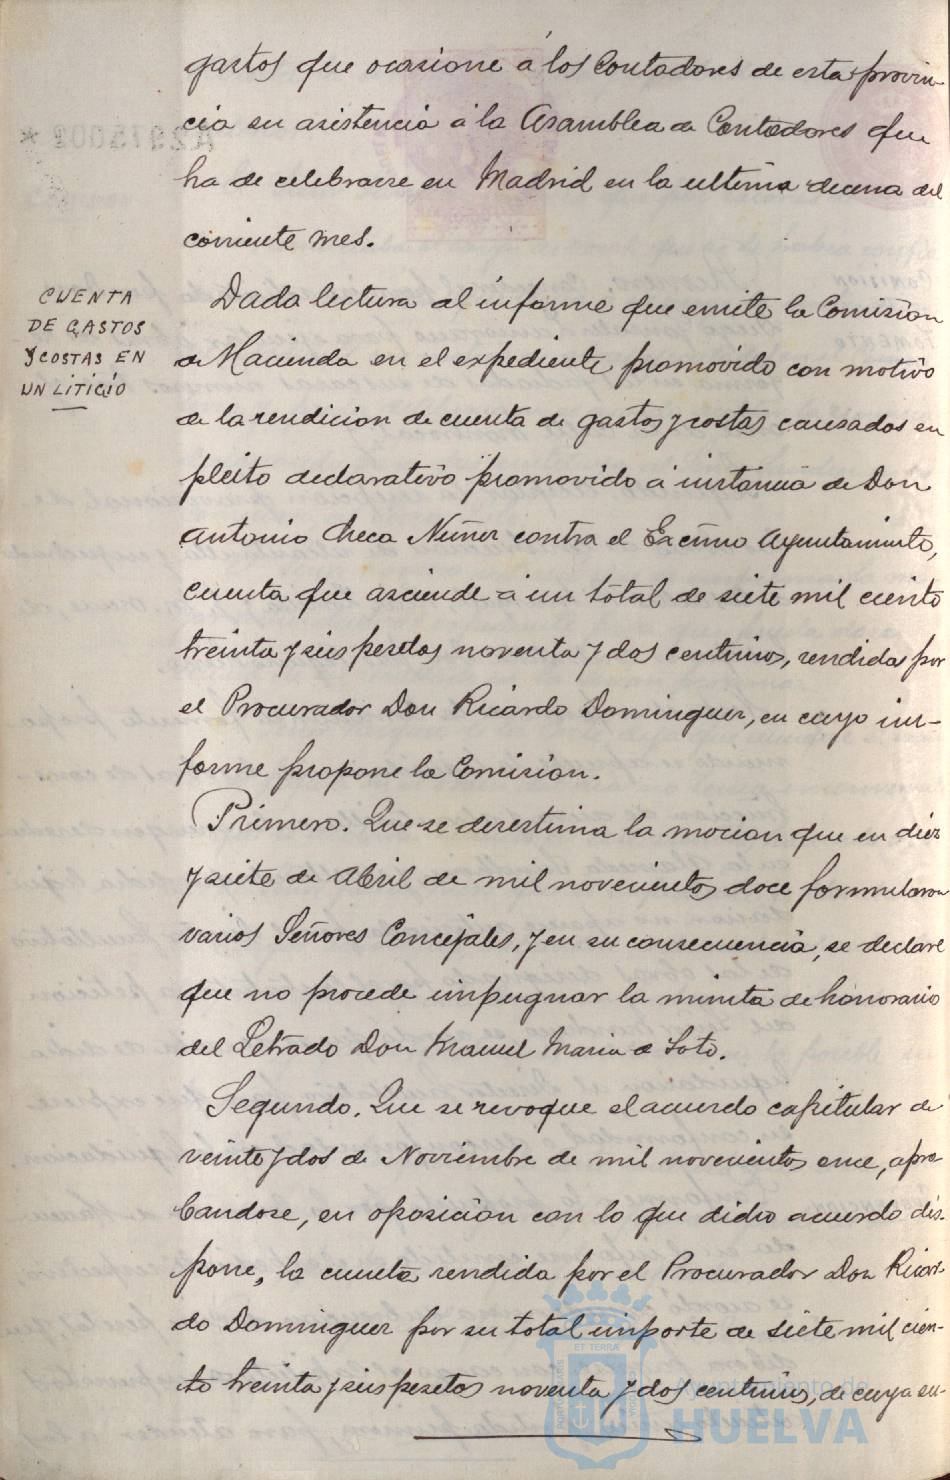 gastos que ocasione á los Contadores de esta provin-
cia su asistencia á la Asamblea de Contadores que
ha de celebrarse en Madrid en la ultima decena del
corriente mes.
CUENTA
DE GASTOS
Y COSTAS EN
UN LITIGIO
Dada lectura al informe que emite la Comision
de Hacienda en el expediente promovido con motivo
de la rendicion de cuenta de gastos y costas causados en
pleito declarativo promovido á instancia de Don
Antonio Checa Nuñez contra el Excmo Ayuntamiento,
cuenta que asciende á un total de siete mil ciento
treinta y seis pesetas noventa y dos centimos, rendidas por
el Procurador Don Ricardo Dominguez, en cuyo in-
forme propone la Comision.
Primero. Que se desestima la mocion que en diez
y siete de Abril de mil novecientos doce formularon
varios Señores Concejales, y en su consecuencia, se declare
que no procede impugnar la minuta de honorario
del Letrado Don Manuel Maria de Soto.
Segundo. Que se revoque el acuerdo capitular de
veinte y dos de Noviembre de mil novecientos once, apro
bandose, en oposicion con lo que dicho acuerdo dis-
pone, la cuenta rendida por el Procurador Don Ricar-
do Dominguez por su total importe de siete mil cien-
to treinta y seis pesetas noventa y dos centimos, de cuya su-
Ayuntamiento de
HUELVA